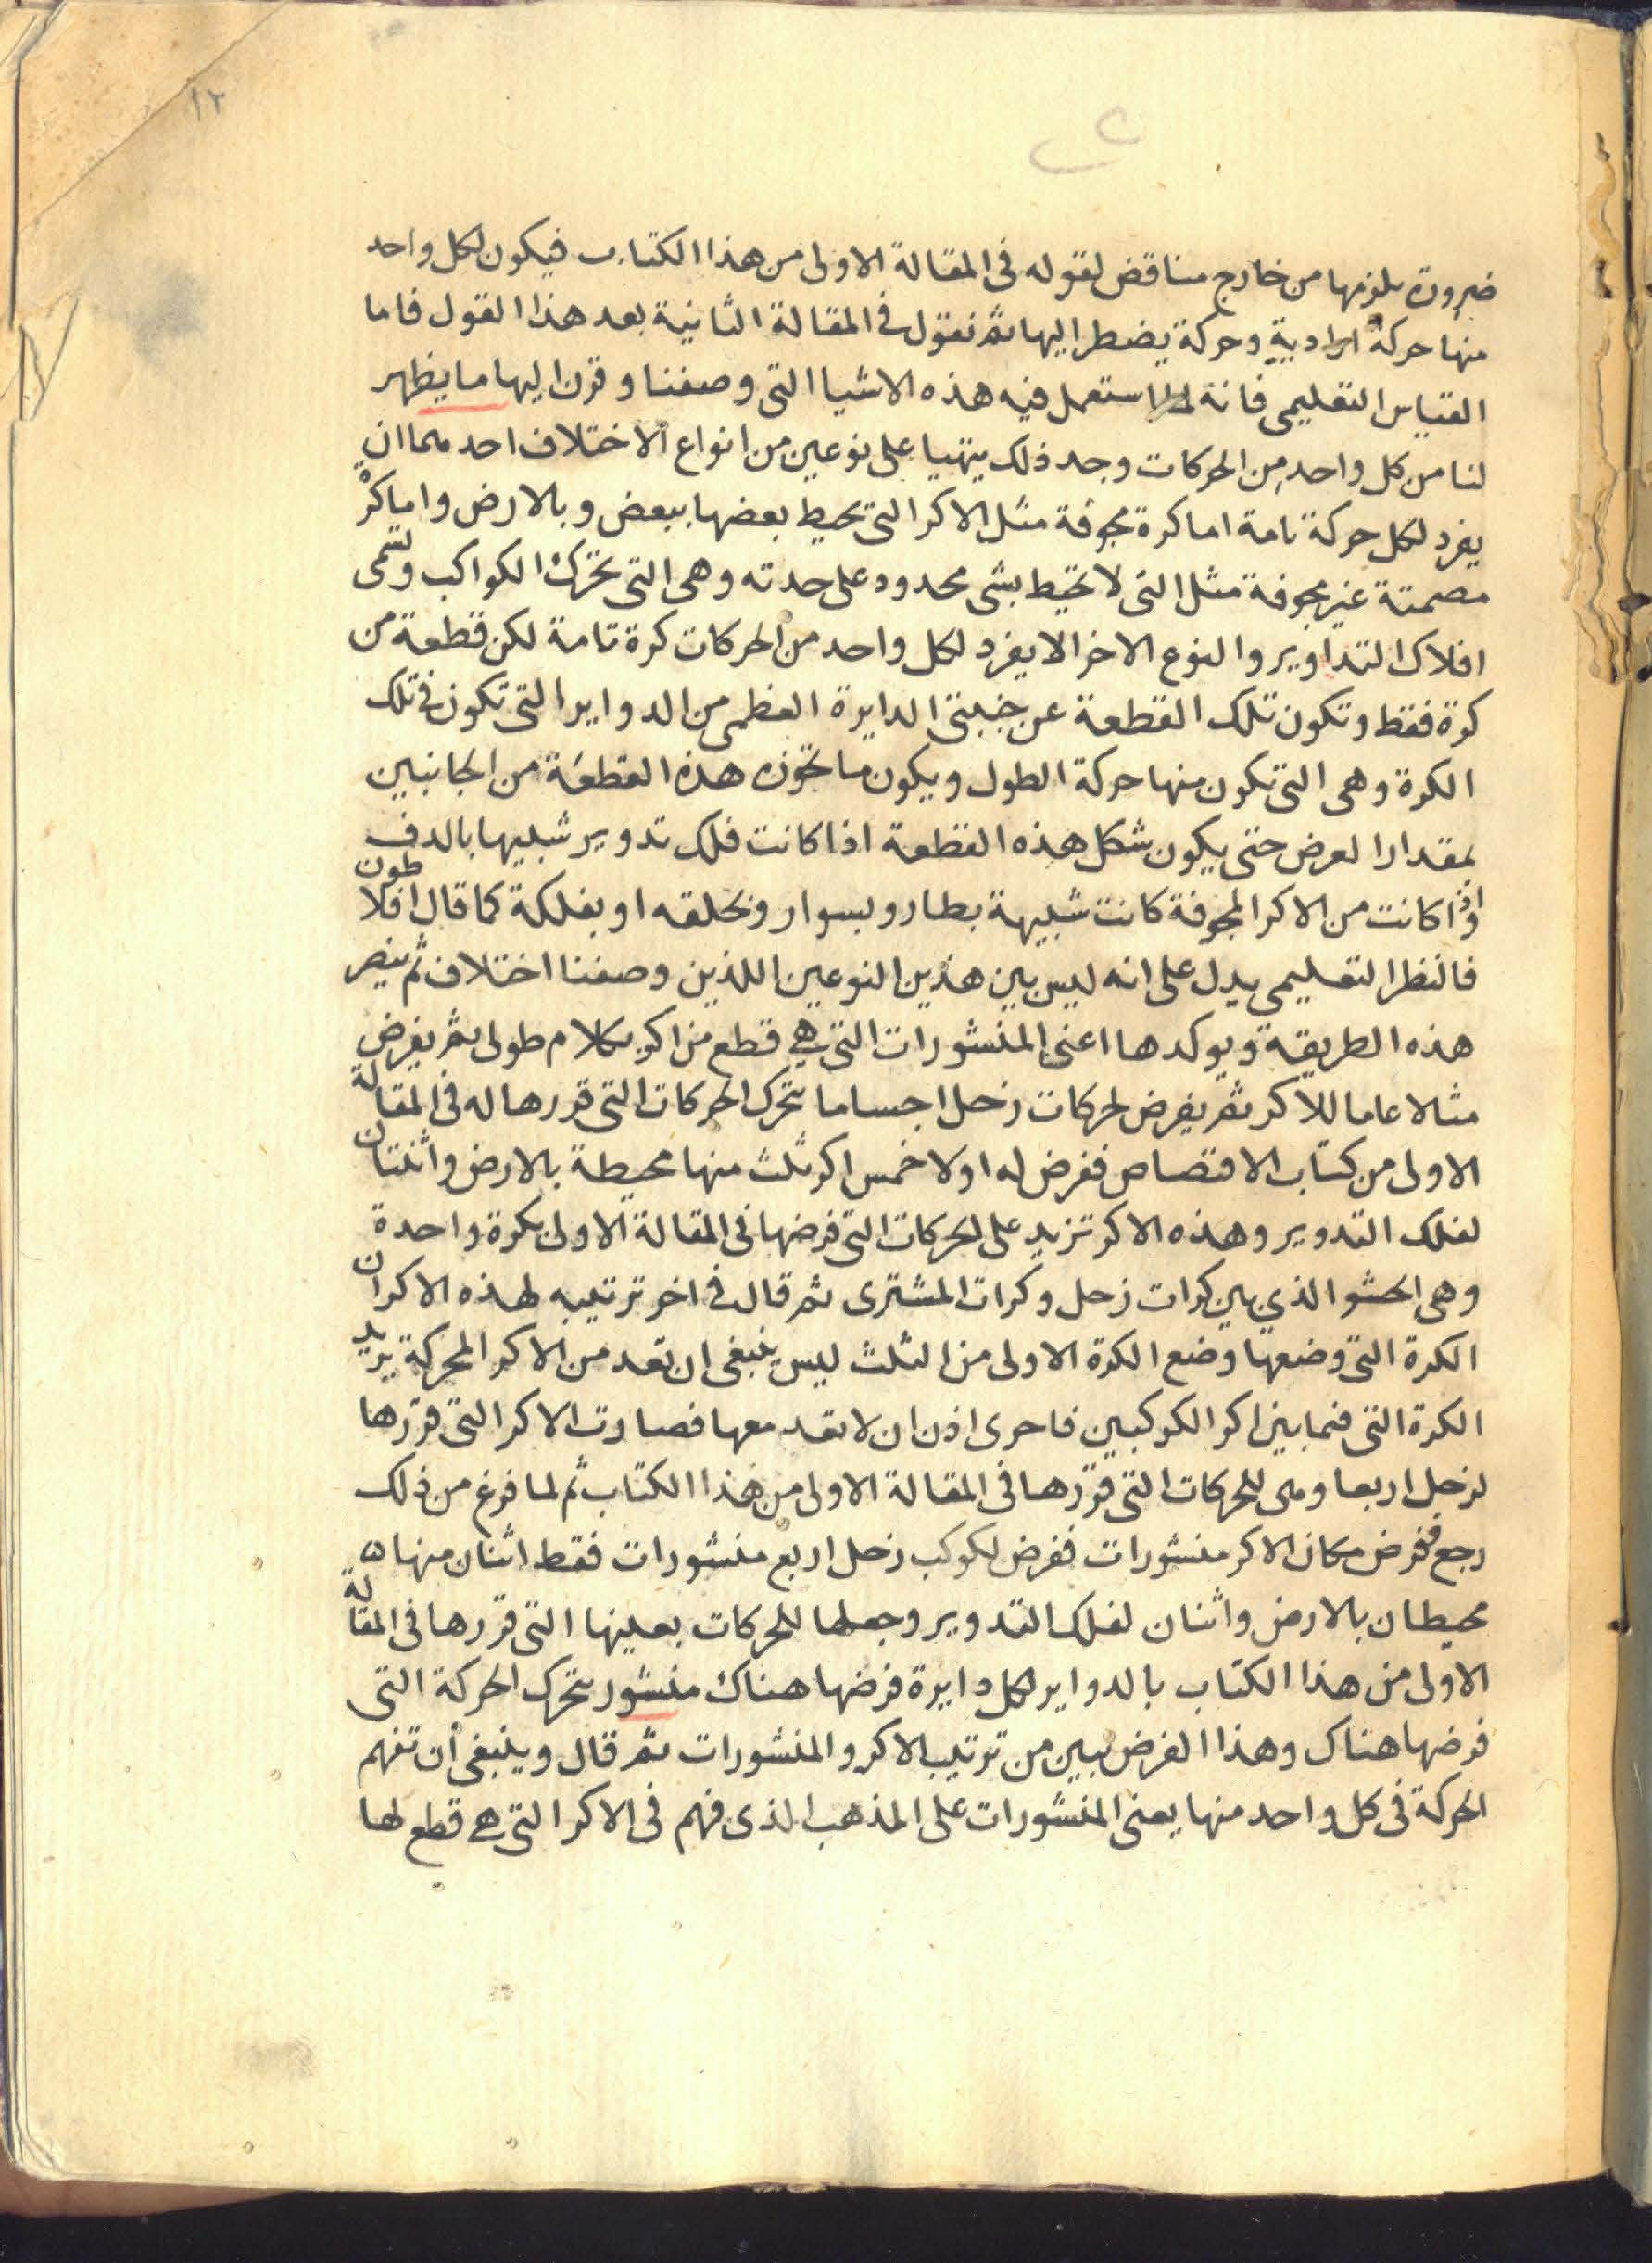 ١٢
ضرورة يلزمها من خارج مناقض لقوله فى المقالة الاولى من هذا الكتاب فيكون لكل واحد
منها حركة ارادية وحركة يضطر اليها ثم نقول فى المقالة الثانية بعد هذا القول فاما
القياس التعليمى فانه لما استعمل فيه هذه الاشيا التى وصفنا وقرن اليها ما يظهر
لنا من كل واحد من الحركات وجد ذلك يتهيا على نوعين من انواع الاختلاف احدهما ان
يفرد لكل حركة تامة اما كرة مجوفة مثل الاكر التى يحيط بعضها ببعض وبالارض واما كرة
مصمتة غير مجوفة مثل التى لا تحيط بشى محدود على حدته وهى التى تحرك الكواكب وتسمى
افلاك التداوير والنوع الاخر الا يفرد لكل واحد من الحركات كرة تامة لكن قطعة من
كرة فقط وتكون تلك القطعة عن جنبتى الدايرة العظمى من الدواير التى تكون فى تلك
الكرة وهى التى تكون منها حركة الطول ويكون ما تحوزه هذه القطعة من الجانبين
بمقدار العرض حتى يكون شكل هذه القطعة اذا كانت فلك تدوير شبيها بالدف
واذا كانت من الاكر المجوفة كانت شبيهة بطار وبسوار وبحلقه او بفلكة كما قال افلاطون
فالنظر التعليمى يدل على انه ليس بين هذين النوعين اللذين وصفنا اختلاف ثم ينصر
هذه الطريقة ويوكدها اعنى المنشورات التى هى قطع من اكر بكلام طولى ثم يفرض
مثالا عاما للاكر ثم يفرض لحركات زحل اجساما تتحرك الحركات التى قررها له فى المقالة
الاولى من كتاب الاقتصاص ففرض له اولا خمس اكر ثلث منها محيطة بالارض واثنتان
لفلك التدوير وهذه الاكر تزيد على الحركات التى فرضها فى المقالة الاولى بكرة واحدة
وهى الحشو الذي بين كرات زحل وكرات المشترى ثم قال فى اخر ترتيبه لهذه الاكر ان
الكرة التى وضعها وضع الكرة الاولى من الثلث ليس ينبغى ان تعد من الاكر المحركة يريد
الكرة التى فيما بين اكر الكوكبين فاحرى اذن ان لا تعد معها فصارت الاكر التى قررها
لزحل اربعا وهى للحركات التى قررها فى المقالة الاولى من هذا الكتاب ثم لما فرغ من ذلك
رجع ففرض مكان الاكر منشورات ففرض لكوكب زحل اربع منشورات فقط اثنان منها
محيطان بالارض واثنان لفلك التدوير وجعلها للحركات بعينها التى قررها فى المقالة
الاولى من هذا الكتاب بالدواير لكل دايرة فرضها هناك منشور يتحرك الحركة التى
فرضها هناك وهذا الفرض بين من ترتيب الاكر والمنشورات ثم قال وينبغى أن تفهم
الحركة فى كل واحد منها يعنى المنشورات على المذهب الذى فهم فى الاكر التى هى قطع لها